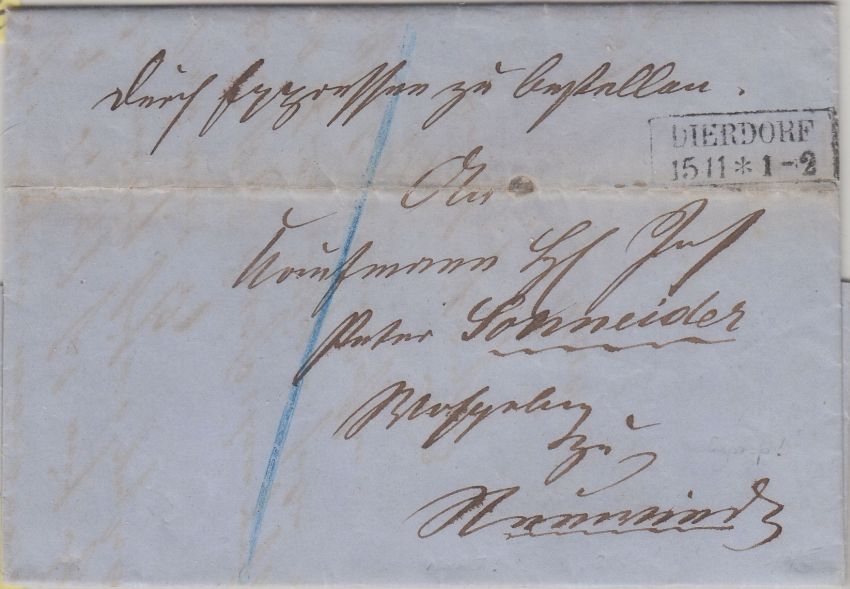 durch Expressen zu bestellen.
DIERDORF
15 11 * 1-2
An
Kaufmann H Jos
Peter Schneider
zu
Neuwied